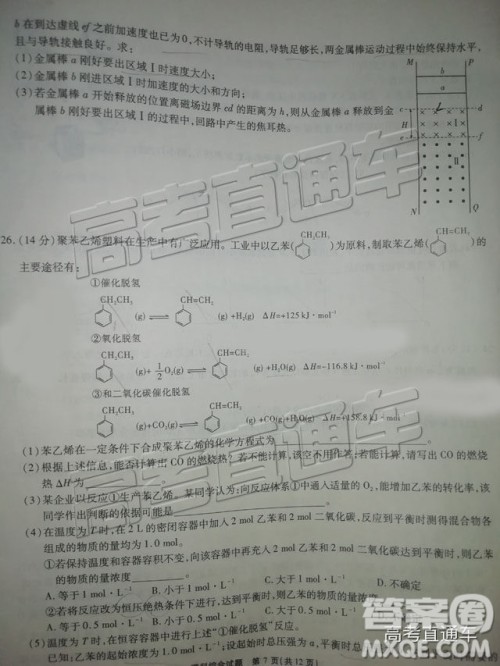 b 在到达虚线 ef 之前加速度也已为 0,不计导轨的电阻,导轨足够长,两金属棒运动过程中始终保持水平,
且与导轨接触良好。求:
(1)金属棒 a 刚好要出区域 Ⅰ 时速度大小;
(2)金属棒 b 刚进区域 Ⅰ 时加速度的大小和方向;
(3)若金属棒 a 开始释放的位置离磁场边界 cd 的距离为 h,则从金属棒 a 释放到金
属棒 b 刚好要出区域 Ⅰ 的过程中,回路中产生的焦耳热。
M P
b
a
c d
H Ⅰ
e f
Ⅱ
N Q
26.(14 分)聚苯乙烯塑料在生产中有广泛应用。工业中以乙苯(CH₂CH₃)为原料,制取苯乙烯(CH=CH₂)的
主要途径有:
①催化脱氢
CH₂CH₃ (g) ⇌ CH=CH₂ (g) +H₂(g) ΔH=+125 kJ·mol⁻¹
②氧化脱氢
CH₂CH₃ (g)+1/2O₂(g) ⇌ CH=CH₂ (g)+H₂O(g) ΔH=-116.8 kJ·mol⁻¹
③和二氧化碳催化脱氢
CH₂CH₃ (g)+CO₂(g) ⇌ CH=CH₂ (g)+CO(g)+H₂O(g) ΔH=+158.8 kJ·mol⁻¹
(1)苯乙烯在一定条件下合成聚苯乙烯的化学方程式为
(2)根据上述信息,能否计算出 CO 的燃烧热?若不能计算,该空不用作答;若能计算,请写出 CO 的燃烧
热 ΔH=
(3)某企业以反应①生产苯乙烯。某同学认为:向反应体系①中通入适量的 O₂,能增加乙苯的转化率,该
同学作出判断的依据可能是
(4)在温度为 T 时,在 2 L 的密闭容器中加入 2 mol 乙苯和 2 mol 二氧化碳,反应到平衡时测得混合物各
组成的物质的量均为 1.0 mol。
①若保持温度和容器容积不变,向该容器中再充入 2 mol 乙苯和 2 mol 二氧化碳达到平衡时,则乙苯
的物质的量浓度
A. 等于 1 mol·L⁻¹ B. 小于 1 mol·L⁻¹ C. 大于 1 mol·L⁻¹ D. 不确定
②若将反应改为恒压绝热条件下进行,达到平衡时,则乙苯的物质的量浓度
A. 等于 0.5 mol·L⁻¹ B. 小于 0.5 mol·L⁻¹ C. 大于 0.5 mol·L⁻¹
(5)温度为 T 时,在恒容容器中进行上述“①催化脱氢”反应。
已知:乙苯的起始量为 1.0 mol,设起始时总压强为 a,平衡时
第 7 页(共 12 页)
高考直通车
高考直通车
答案圈
高考直通车